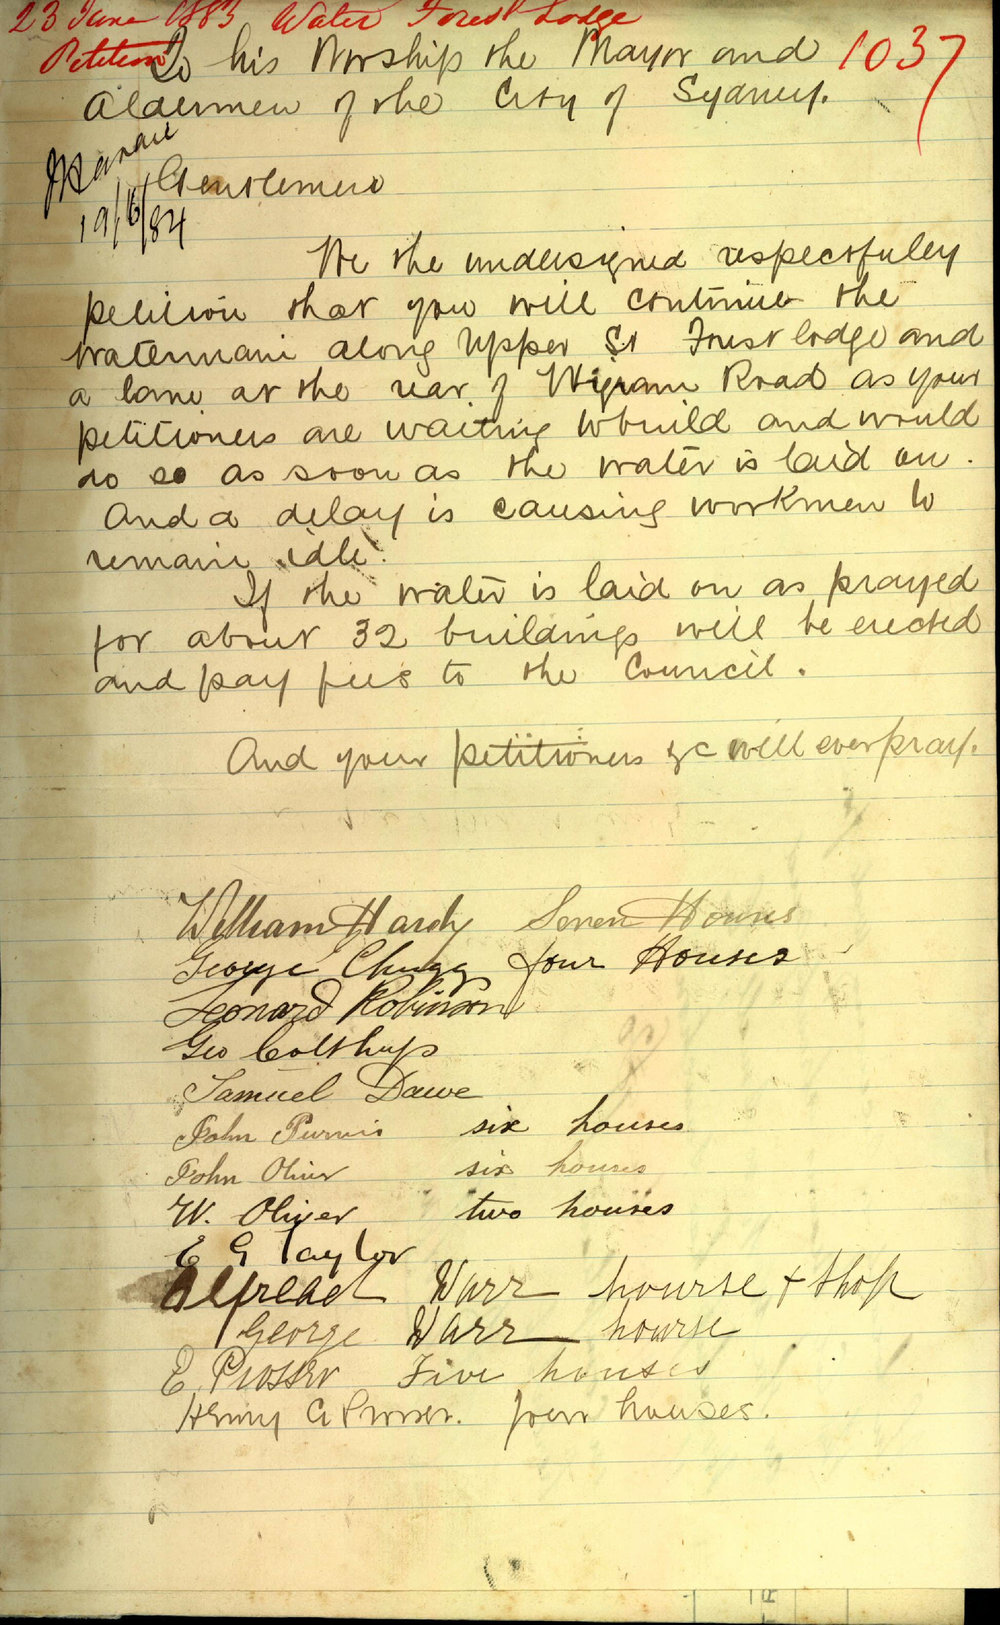 23 June 1883 Water Forest Lodge
Petition
1037
To his Worship the Mayor and
Aldermen of the City of Sydney.
19/6/84
Gentlemen
We the undersigned respectfully
petition that you will continue the
watermain along Upper St Forest lodge and
a lane at the rear of Wigram Road as your
petitioners are waiting to build and would
do so as soon as the water is laid on.
And a delay is causing workmen to
remain idle.
If the water is laid on as prayed
for about 32 buildings will be erected
and pay fees to the Council.
And your petitioners &c will ever pray.
William Hardy Seven Houses
George Chugg four Houses
Leonard Robinson
Geo Colthup
Samuel Dawe
John Purvis six houses
John Oliver six houses
W. Oliver two houses
E G Taylor
Alfread Warr hourse + shop
George Warr hourse
E Prosser Five houses
Henry G Prosser. four houses.